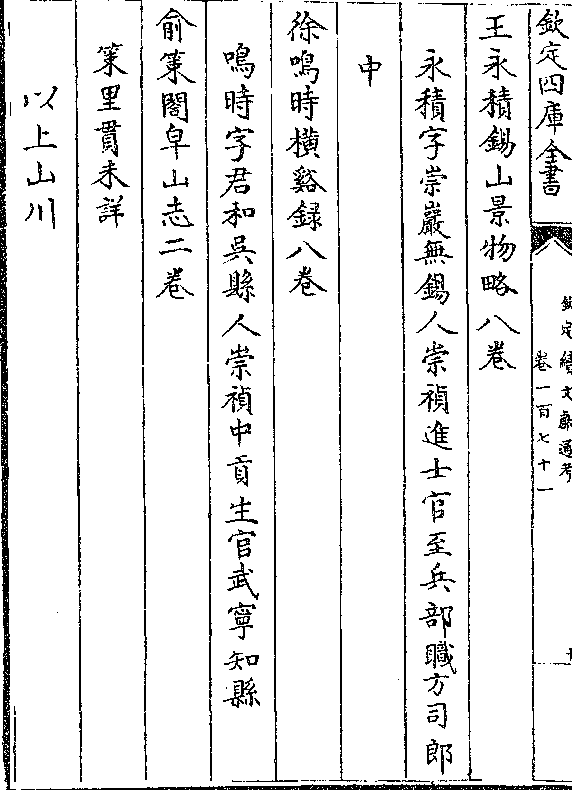 欽定四庫全書
欽定續文獻通考
卷一百七十一
王永積錫山景物略八卷
永積字崇巖無錫人崇禎進士官至兵部職方司郎
中
徐鳴時橫谿録八卷
鳴時字君和吳縣人崇禎中貢生官武寧知縣
俞策閤皁山志二卷
策里貫未詳
以上山川